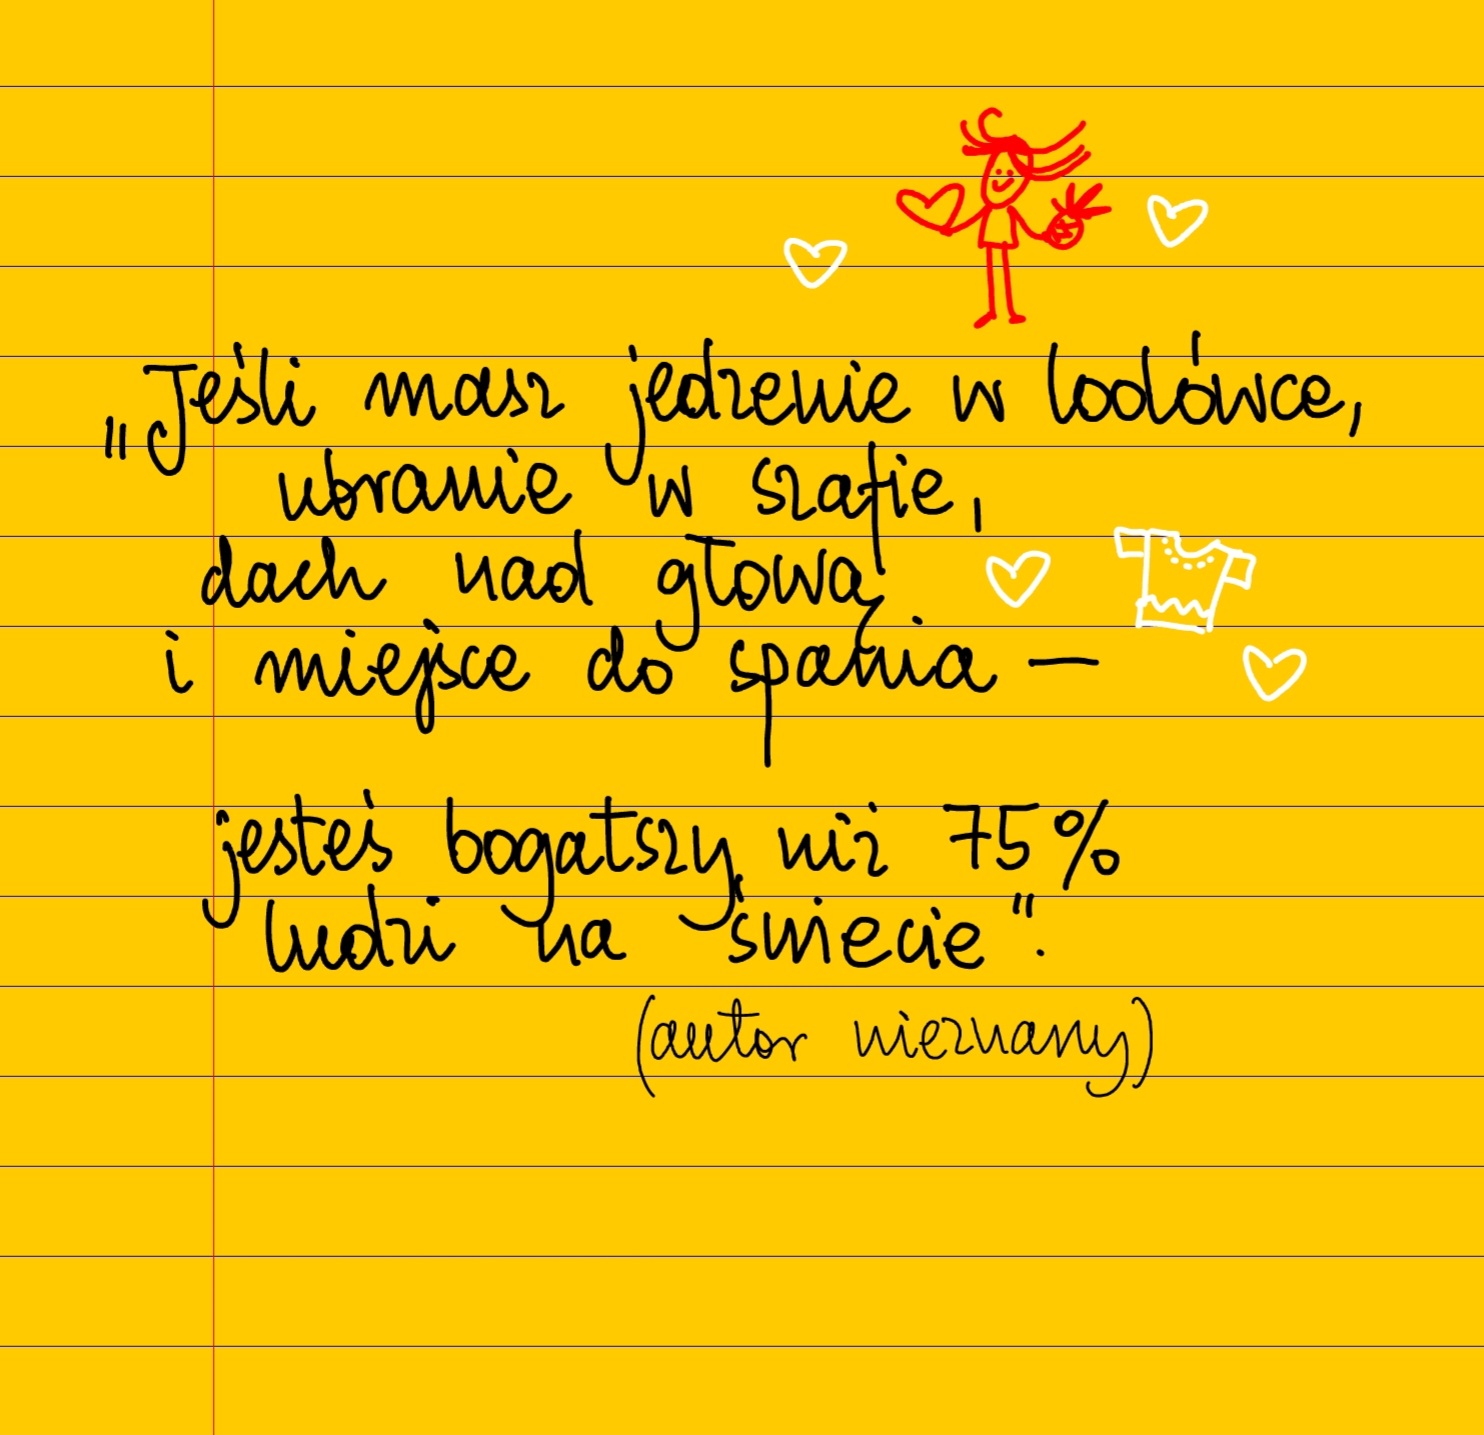 „Jeśli masz jedzenie w lodówce,
ubranie w szafie,
dach nad głową
i miejsce do spania —
jesteś bogatszy niż 75%
ludzi na świecie".
(autor nieznany)